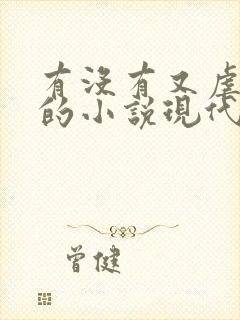 有沒有又虐
的小說現代
曾健